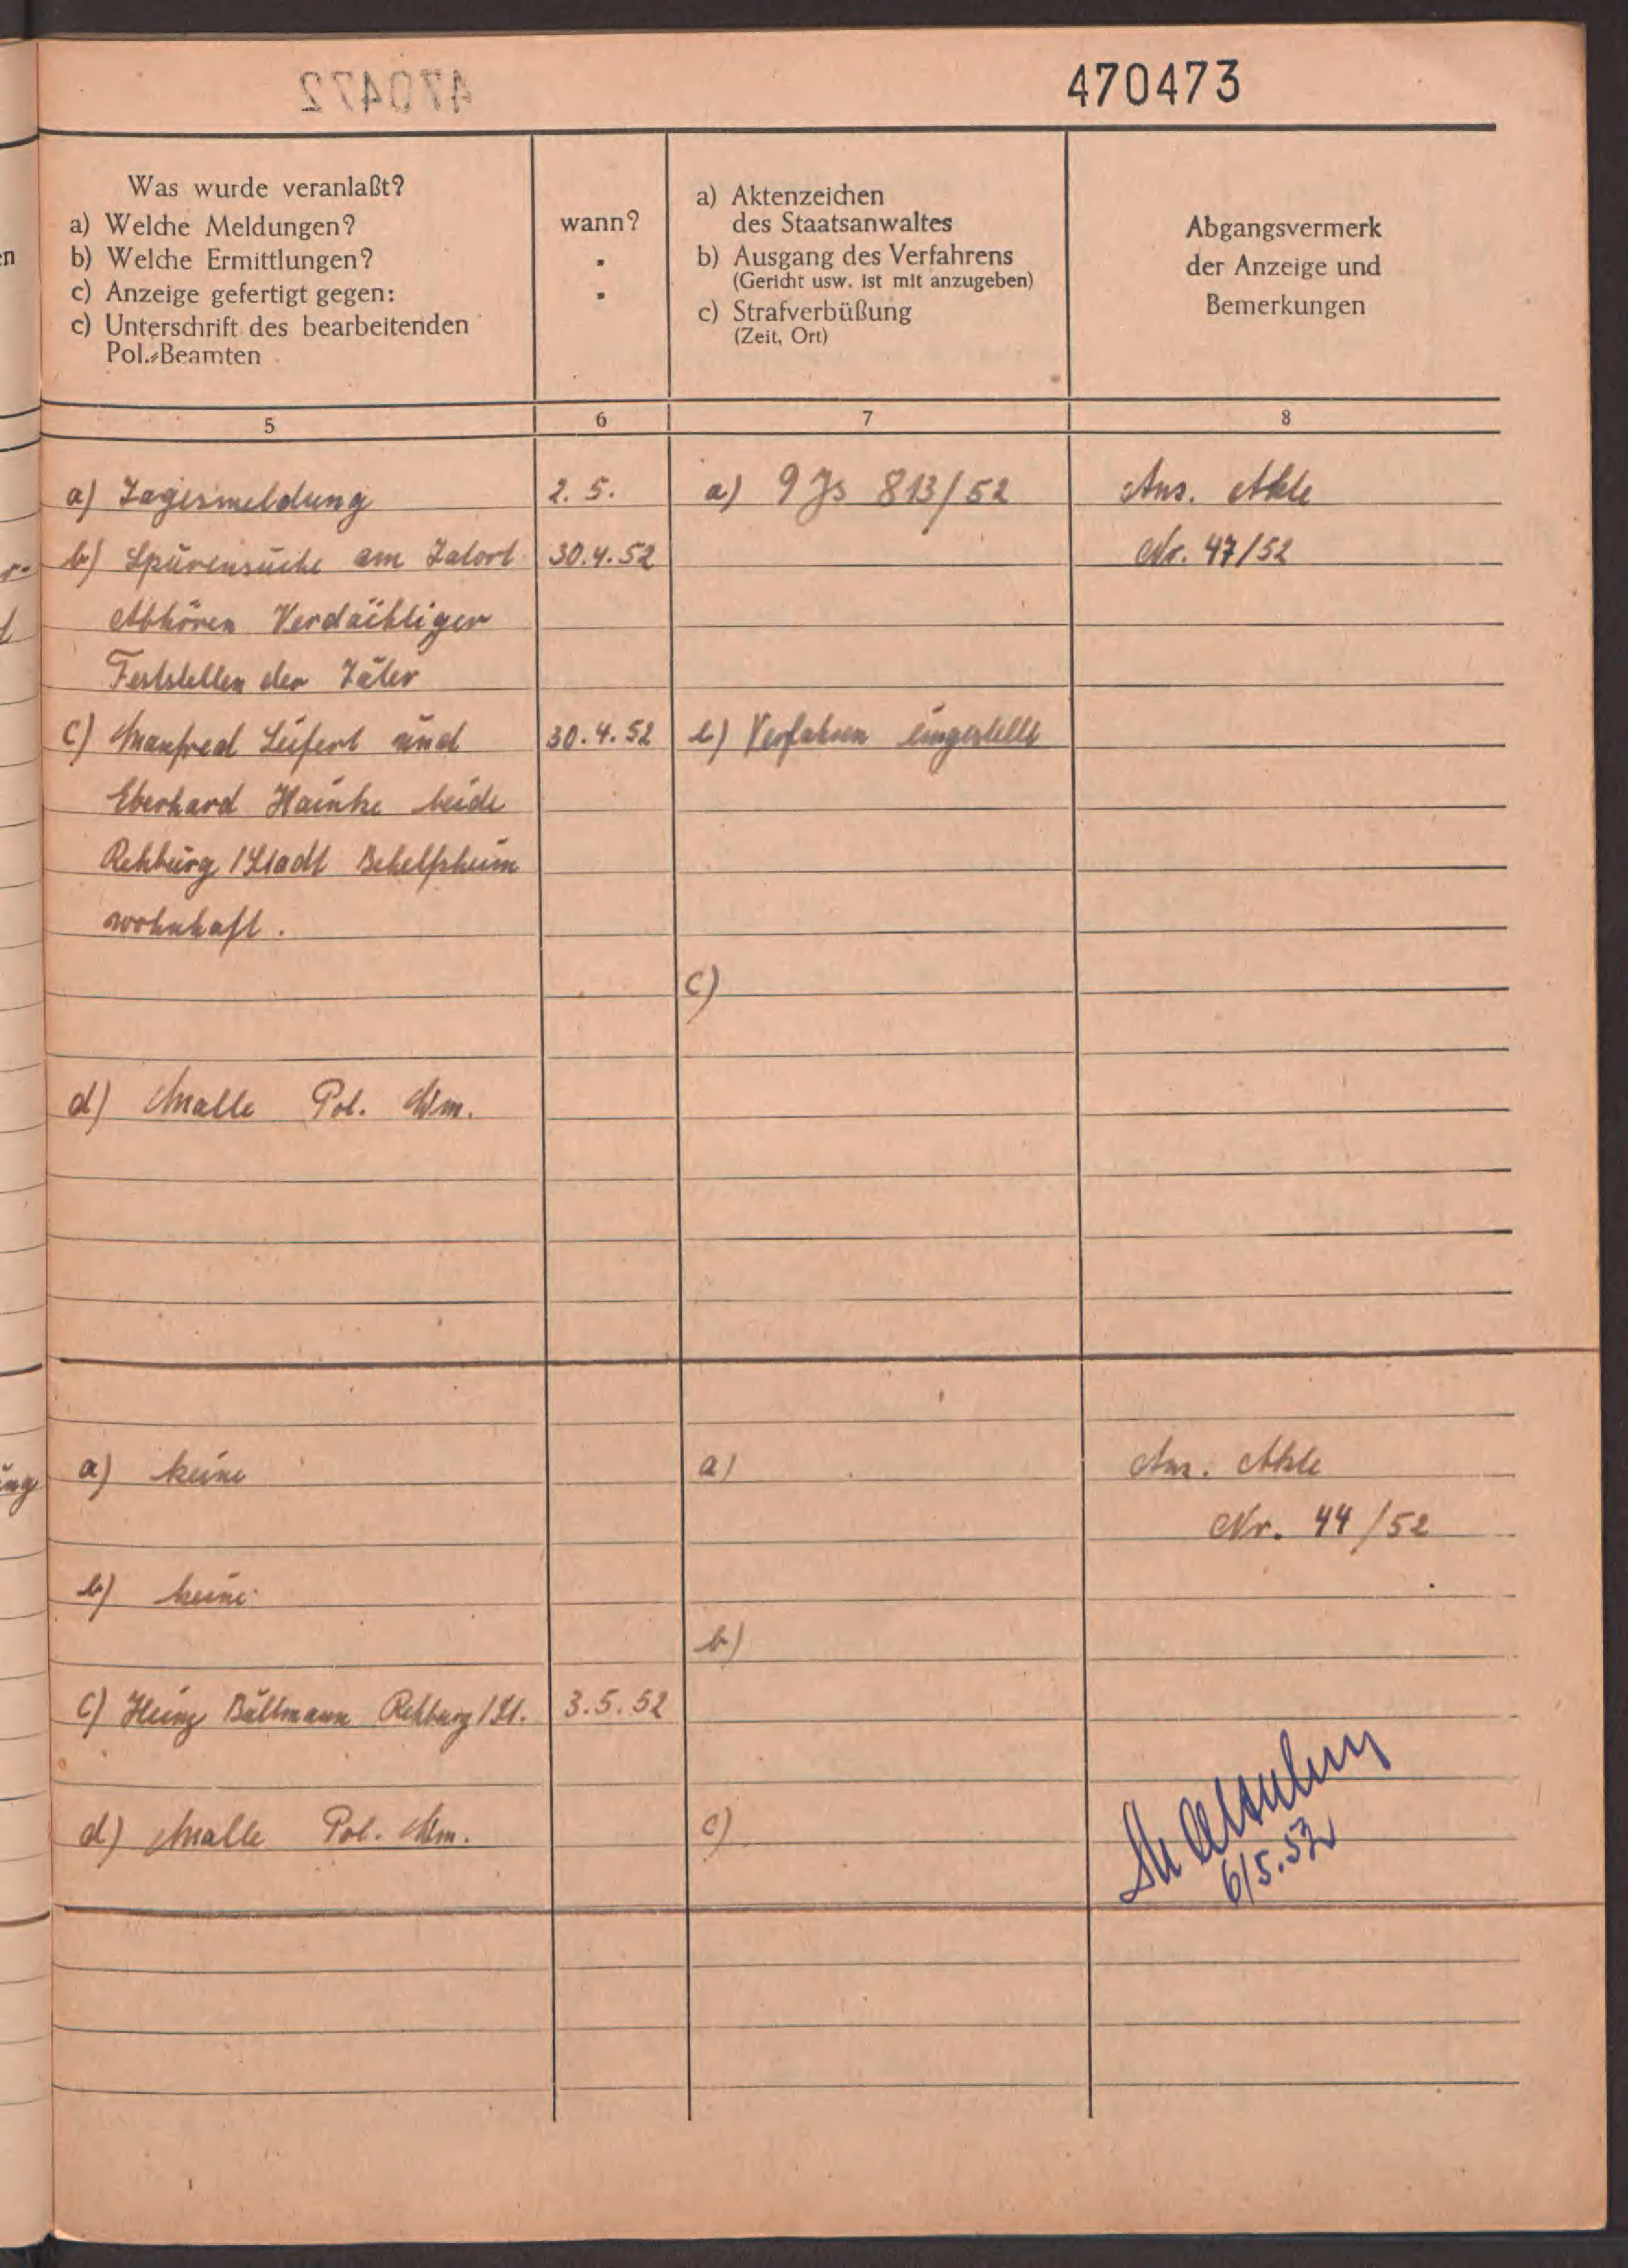 470472
470473
Was wurde veranlaßt?
a) Welche Meldungen?
b) Welche Ermittlungen?
c) Anzeige gefertigt gegen:
c) Unterschrift des bearbeitenden
Pol.-Beamten
wann?
a) Aktenzeichen
des Staatsanwaltes
b) Ausgang des Verfahrens
(Gericht usw. ist mit anzugeben)
c) Strafverbüßung
(Zeit, Ort)
Abgangsvermerk
der Anzeige und
Bemerkungen
5
6
7
8
a) Tagesmeldung
2. 5.
a) 9 Js 813/52
Anz. Akte
b) Spurensuche am Tatort
30.4.52
Nr. 47/52
Abhören Verdächtiger
Feststellen der Täter
c) Manfred Seifert und
30.4.52
b) Verfahren eingestellt
Eberhard Hainke beide
Rehburg/Stadt Behelfsheim
wohnhaft.
c)
d) Malle Pol. Wm.
ung
a) keine
a)
Anz. Akte
Nr. 44/52
b) keine
b)
c) Heinz Bültmann Rehburg/St.
3.5.52
d) Malle Pol. Wm.
c)
6/5.52